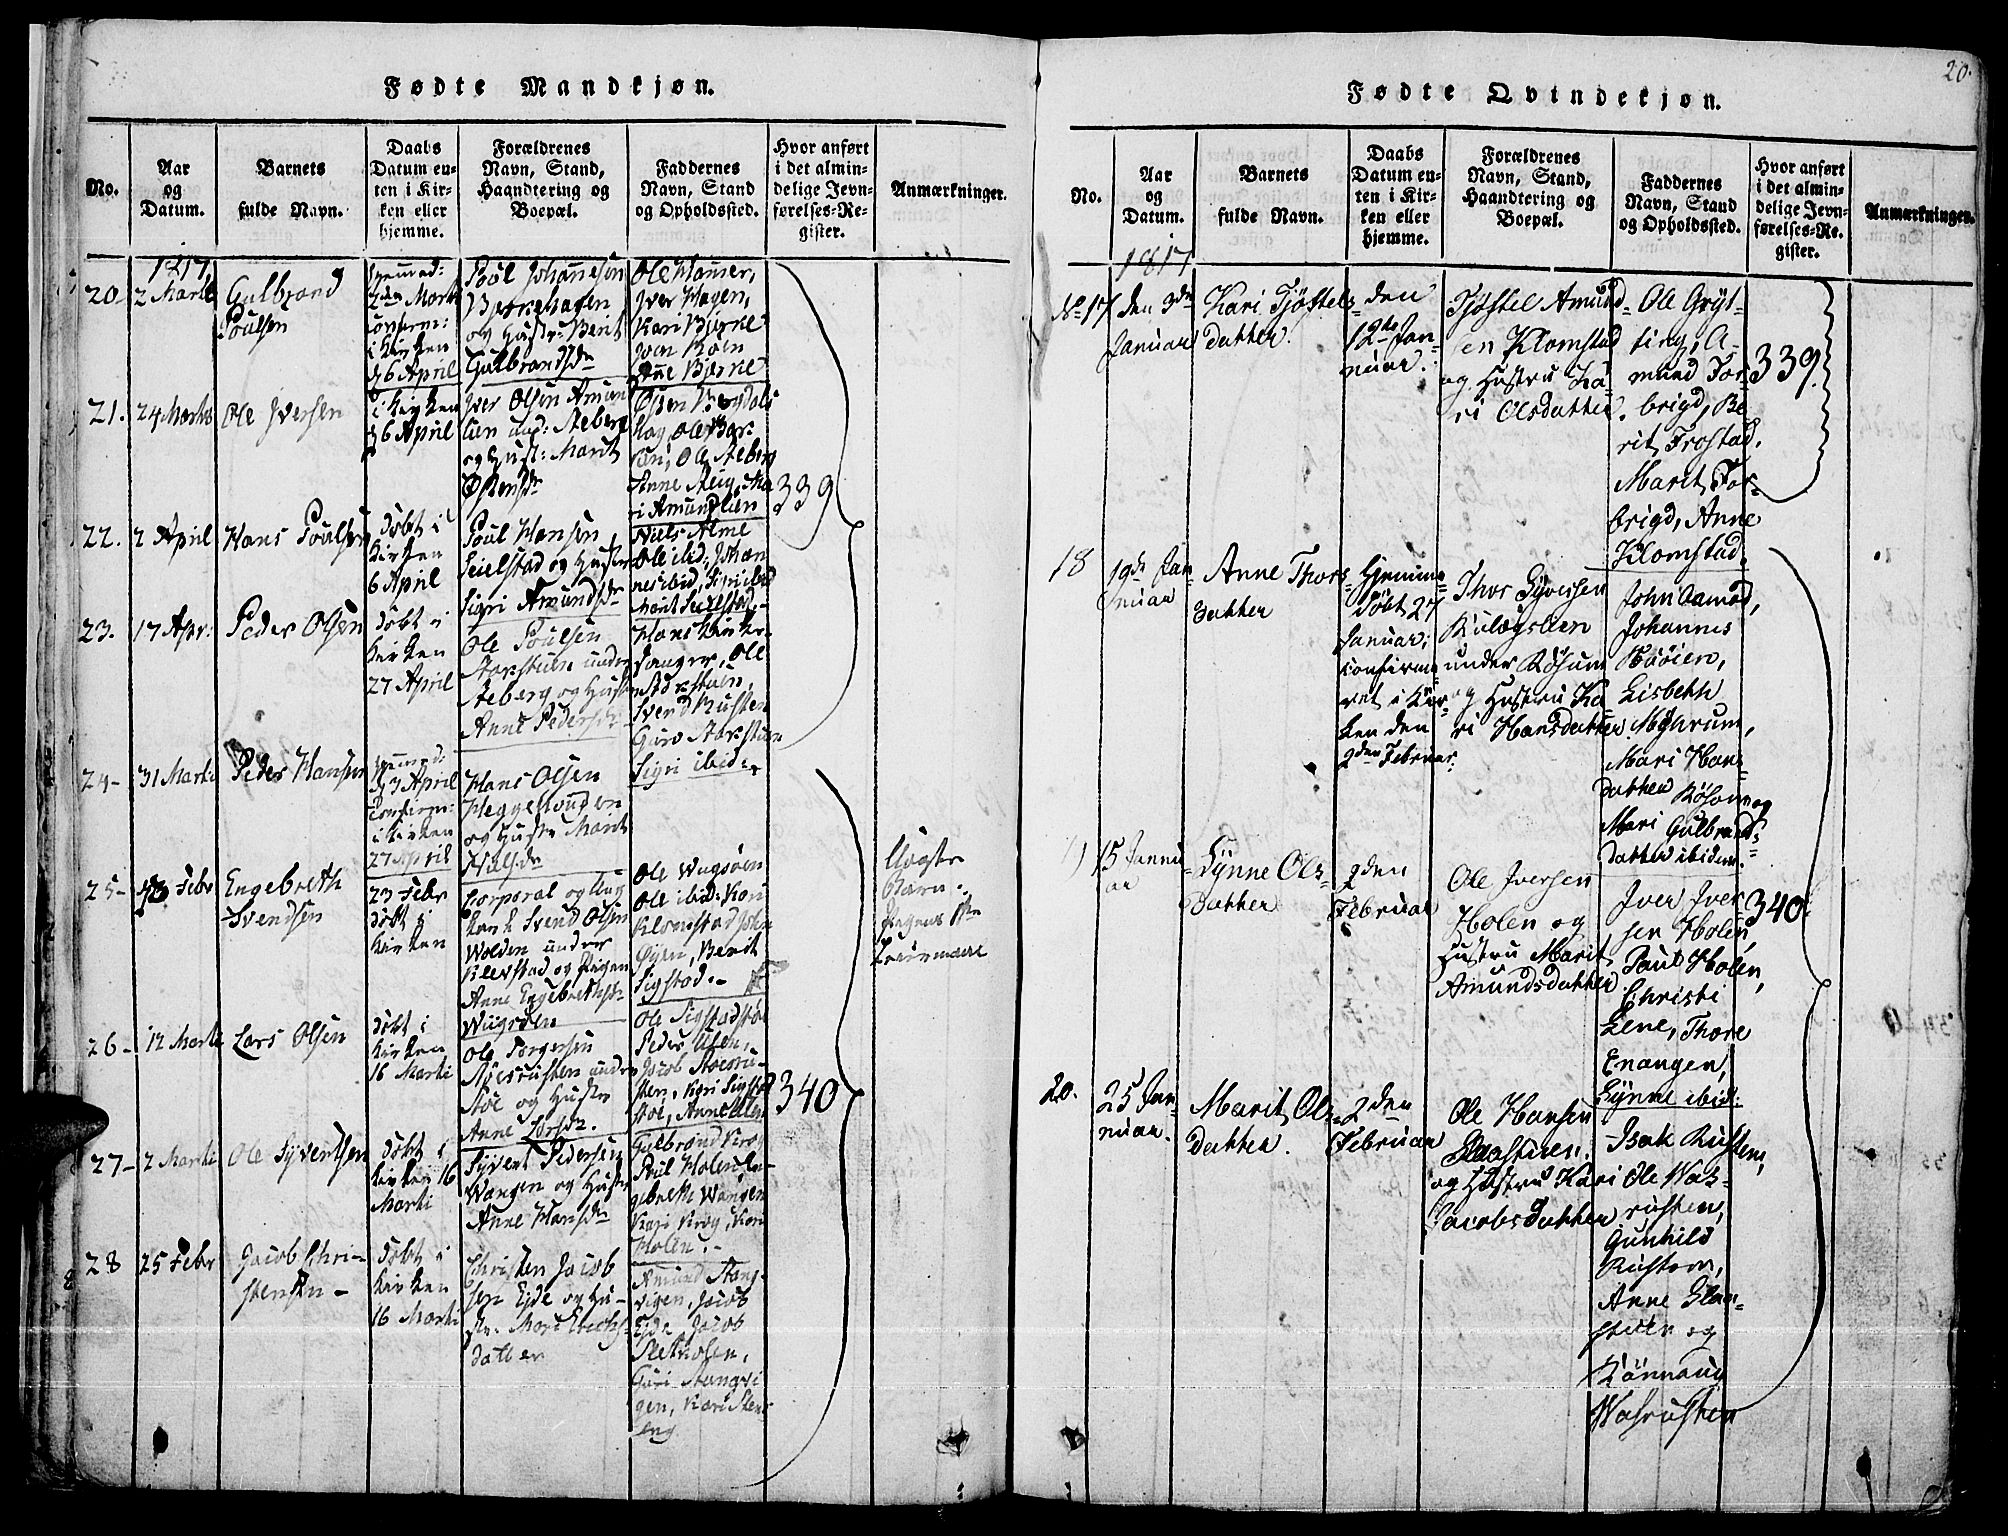 Fødte Mandkjøn.
No.
Aar
og
Datum.
Barnets
fulde Navn.
Daabs
Datum en-
ten i Kir-
ken eller
hjemme.
Forældrenes
Navn, Stand,
Haandtering og
Boepæl.
Faddernes
Navn, Stand
og Opholdssted.
Hvor anført
i det almin-
delige Jevn-
førelses-Re-
gister.
Anmærkninger.
1817
20-
2 Martii
Gulbrand
Poulsen
hjemmed:
2den Martii
confirm:
i Kirken
d 6 April
Poul Johannesen
Bjerkehagen
og Hustr: Berit
Gulbrandsdr
Ole Hammer,
Iver Hagen,
Kari Bjerke
Joen Moen
Anne Bjerke
21.
24 Martii
Ole Iversen
i Kirken
d 6 April
Iver Olsen Amun
lien und: Aaberg
og Hust: Marit
Østensdr
Østen Bergdals
hag, Ole
Ole Aaberg
Anne Steig, Ma
ri Amundlien
339
22.
2 April
Hans Poulsen
Døbt i
Kirken
6 April
Poul Hansen
Seielstad og Hustr
Sigri Amundsdr
Niels Alme
Ole ibid, Johan
nes ibid, Siri ibid
Marit Seielstad.-
23.
17 Apr:
Peder Olsen
Døbt i
Kirken
27 April
Ole Poulsen
Storstuen under
Aaberg og Hustr
Anne Pedersdr
Hans Kirke-
sanger, Ole
Storstuen,
Svend Rusten
Guro Storstuen
Sigri ibid:-
24-
31 Martii
Peder Hansen
hjemmed:
d 3 April
Confirm:
i Kirken
27 April
Hans Olsen
Heggelunden
og Hustr Marit
Nielsdr
25-
23 Febr
Engebreth
Svendsen
23 Febr
Døbt i
Kirken
Corporal og Ung
karl Svend Olsen
Wolden under
Klevstad og Pigen
Anne Engebrethsdr
Wiigsøen
Ole Wugsøen
Ole ibid: Kari
Klomstad John
Øyen, Berit
Sigstad.-
Uægte
Barn.
Pigens 1ste
Leiermaal
26-
12 Martii
Lars Olsen
Døbt i
Kirken
16 Martii
Ole Torgersen
Støesrusten under
Støe og Hustr
Anne Larsdr.
Ole Sigstadstøe
Peder Olsen,
Jacob Støesru-
sten, Kari Sigstad
støe, Anne
340
27-
2 Martii
Ole Syvertsen
Døbt i
Kirken 16
Martii
Syvert Pedersen
Wangen og Hustr
Anne Hansdr
Gulbrand Krog
Poul Holen En-
gebreth Wangen
Kari Krog, Kari
Holen.-
28
25 Febr
Jacob Chri-
stensen -
Døbt i
Kirken
16 Martii
Christen Jacob
sen Eide og Hu-
str: Mari Erichs
datter
Amund Stang-
vigen, Jacob
Eide Jacob
Guri Stangvi
gen, Kari Stens
eng
20.
Fødte Qvindekjøn.
No.
Aar
og
Datum.
Barnets
fulde Navn.
Daabs
Datum en-
ten i Kir-
ken eller
hjemme.
Forældrenes
Navn, Stand,
Haandtering og
Boepæl.
Faddernes
Navn, Stand
og Opholdssted.
Hvor anført
i det almin-
delige Jevn-
førelses-Re-
gister.
Anmærkninger.
1817
No 17
den 3die
Januar
Kari Tjøstels-
datter.
den
12te Jan-
nuar.
Tjøstel Amund-
sen Klomstad
og Hustru Ka-
ri Olsdatter
Ole Gryt-
ting, A-
mund For-
brigd, Be
rit Frostad,
Marit For-
brigd, Anne
Klomstad.
339.
18
19de Jan-
nuar
Anne Thors-
datter
Hjemme-
døbt 27
Januar,
confirme-
ret i Kir-
ken den
2den Februar.
Thor Syversen
under Røsum
og Hustru Ka-
ri Hansdatter
John Aamod,
Johannes
Lisbeth
Mari Hans-
datter Røsum og
Mari Gulbrands-
datter ibidem.
19
15 Janu-
ar
Synne Ols-
datter
2den
Februar
Ole Iversen
Holen og
Hustru Marit
Amundsdatter
Iver Iver-
sen Holen,
Paul Holen,
Christi
Lene, Thore
Enangen,
Synne ibid:
340.
20.
25 Jan-
nuar.
Marit Ols-
datter.
2den
Februar
Ole Hansen
og Hustru Kari
Jacobsdatter
Isak Rusten,
Ole Was-
rusten,
Gunhild
Rusten,
Anne
og
Rønnaug
Wasrusten